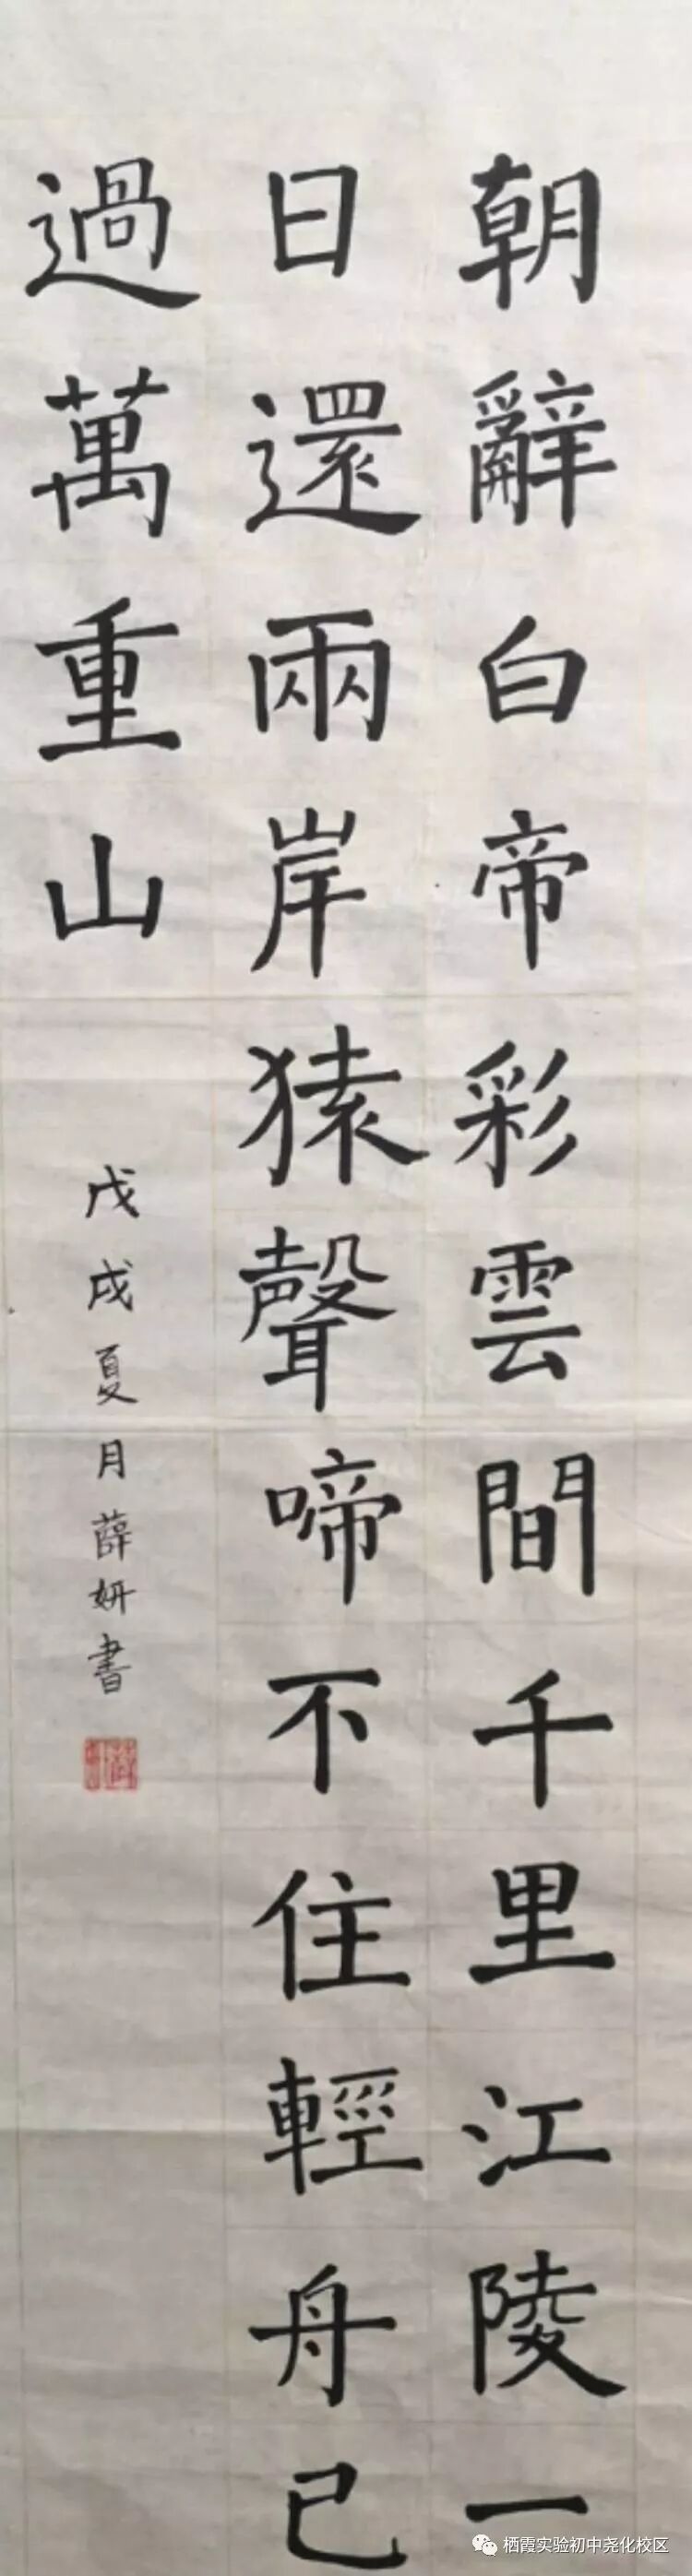 朝辭白帝彩雲間千里江陵一
日還兩岸猿聲啼不住輕舟已
過萬重山
戊戌夏月薛妍書
栖霞实验初中尧化校区